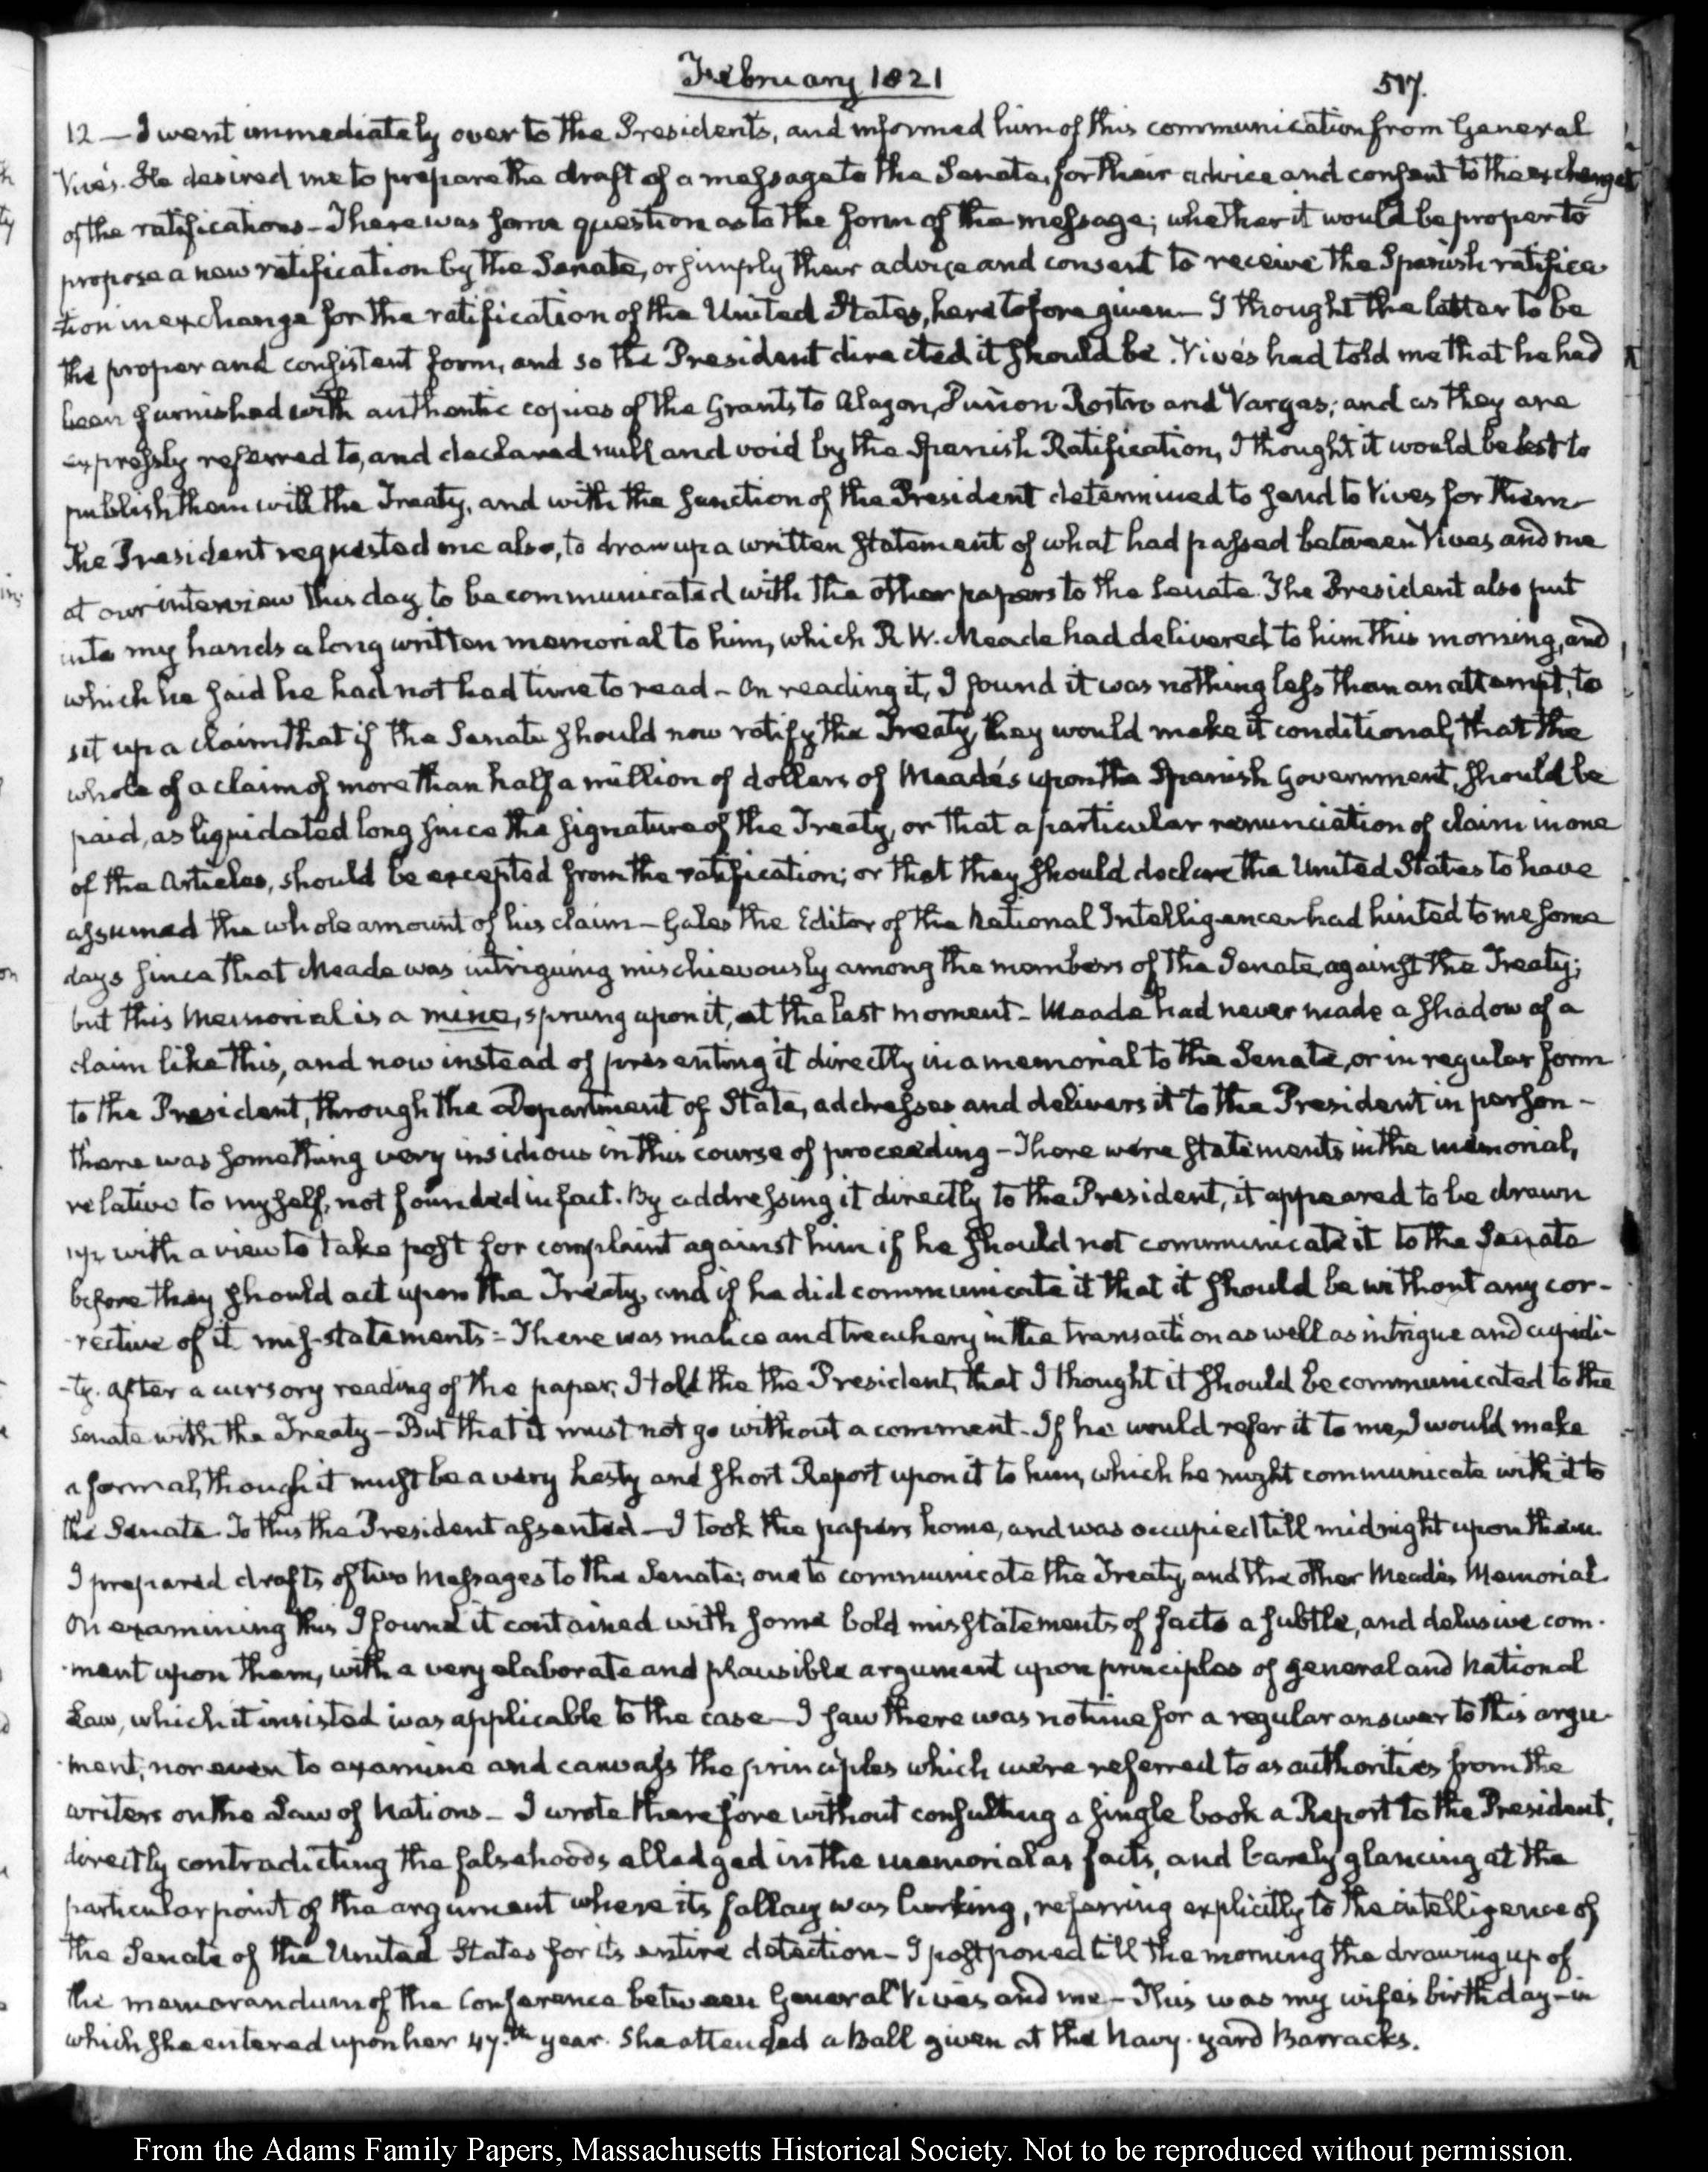 February 1821
517.
12 — I went immediately over to the Presidents, and informed him of this communication from General
Vivés. He desired me to prepare the draft of a message to the Senate, for their advice and consent to the exchange
of the ratifications — There was some question as to the form of the message; whether it would be proper to
propose a new ratification by the Senate, or simply their advice and consent to receive the Spanish ratifica
tion in exchange for the ratification of the United States, heretofore given — I thought the latter to be
the proper and consistent form, and so the President directed it should be. Vivés had told me that he had
been furnished with authentic copies of the Grants to Alagon, Puñon Rostro and Vargas; and as they are
expressly referred to, and declared null and void by the Spanish Ratification, I thought it would be best to
publish them with the Treaty, and with the sanction of the President determined to send to Vives for them —
The President requested me also, to draw up a written statement of what had passed between Vives and me
at our interview this day to be communicated with the other papers to the Senate. The President also put
into my hands a long written memorial to him, which R. W. Meade had delivered to him this morning, and
which he said he had not had time to read — On reading it, I found it was nothing less than an attempt, to
set up a claim that if the Senate should now ratify the Treaty, they would make it conditional, that the
whole of a claim of more than half a million of dollars of Meade's upon the Spanish Government, should be
paid, as liquidated long since the signature of the Treaty, or that a particular renunciation of claim in one
of the Articles, should be excepted from the ratification; or that they should declare the United States to have
assumed the whole amount of his claim — Gales the Editor of the National Intelligencer had hinted to me some
days since that Meade was intriguing mischievously among the members of the Senate, against the Treaty;
but this Memorial is a mine, sprung upon it, at the last moment — Meade had never made a shadow of a
claim like this, and now instead of presenting it directly in a memorial to the Senate, or in regular form
to the President, through the Department of State, addresses and delivers it to the President in person —
there was something very insidious in this course of proceeding — There were statements in the memorial,
relative to myself, not founded in fact. By addressing it directly to the President, it appeared to be drawn
up with a view to take post for complaint against him if he should not communicate it to the Senate
before they should act upon the Treaty, and if he did communicate it that it should be without any cor-
-rective of it mis-statements — There was malice and treachery in the transaction as well as intrigue and cupidi-
-ty. After a cursory reading of the paper, I told the the President, that I thought it should be communicated to the
Senate with the Treaty — But that it must not go without a comment. If he would refer it to me, I would make
a formal, though it must be a very hasty and short Report upon it to him, which he might communicate with it to
the Senate. To this the President assented — I took the papers home, and was occupied till midnight upon them.
I prepared drafts of two Messages to the Senate; one to communicate the Treaty, and the other Meade's Memorial.
On examining this I found it contained with some bold misstatements of facts a subtle, and delusive com-
-ment upon them, with a very elaborate and plausible argument upon principles of general and national
Law, which it insisted was applicable to the case — I saw there was no time for a regular answer to this argu-
-ment, nor even to examine and canvass the principles which were referred to as authorities from the
writers on the Law of Nations — I wrote therefore without consulting a single book a Report to the President,
directly contradicting the falsehoods alledged in the memorial as facts, and barely glancing at the
particular point of the argument where its fallacy was lurking, referring explicitly to the intelligence of
the Senate of the United States for its entire detection — I postponed till the morning the drawing up of
the memorandum of the Conference between General Vivés and me — This was my wife's birthday — in
which she entered upon her 47.th year. She attended a Ball given at the Navy-yard Barracks.
From the Adams Family Papers, Massachusetts Historical Society. Not to be reproduced without permission.